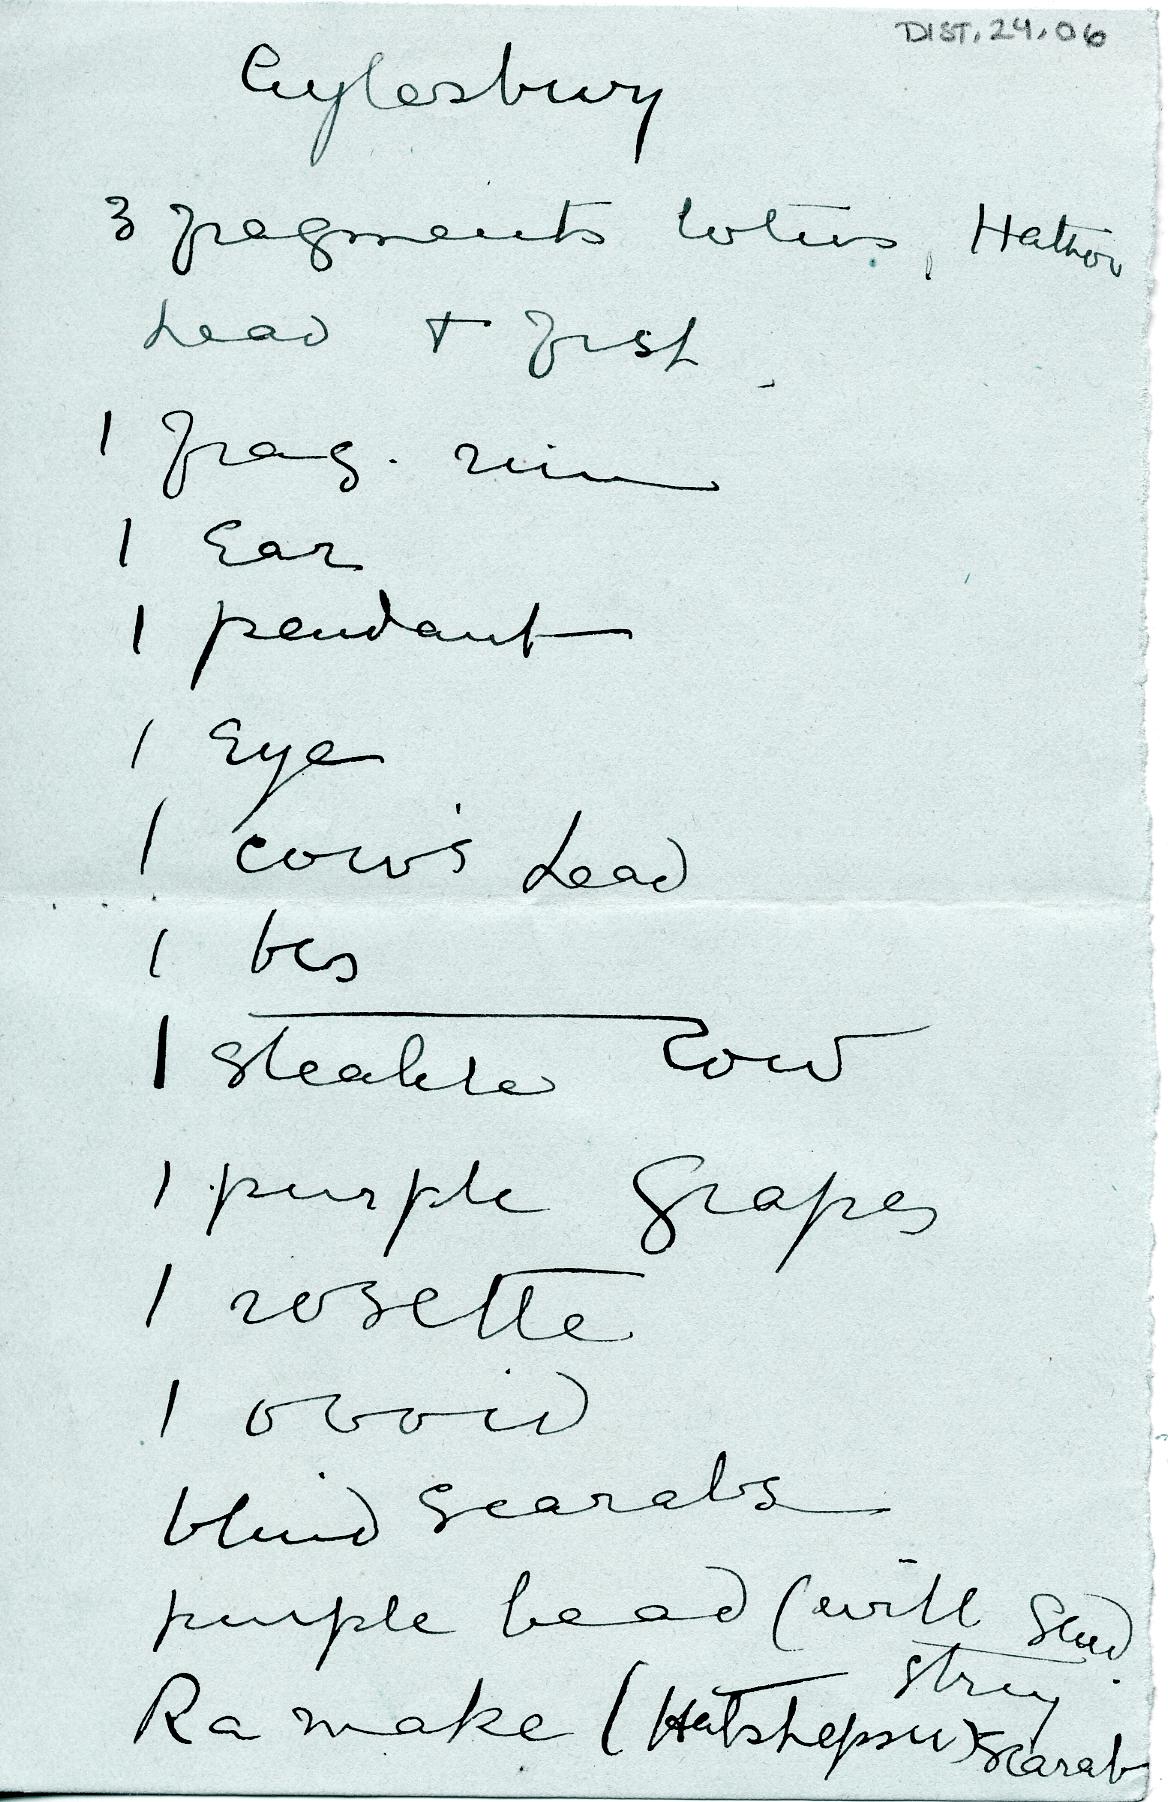 DIST. 24.06
Aylesbury
3 fragments lotus, Hathor
head + fist
1 frag. rim
1 Ear
1 pendant
1 Eye
1 cow's head
1 bes
1 steatite cow
1 purple Grapes
1 rosette
1 ovoid
blind scarabs
purple bead (will send
string
Ra make (Hatshepsu) scarab